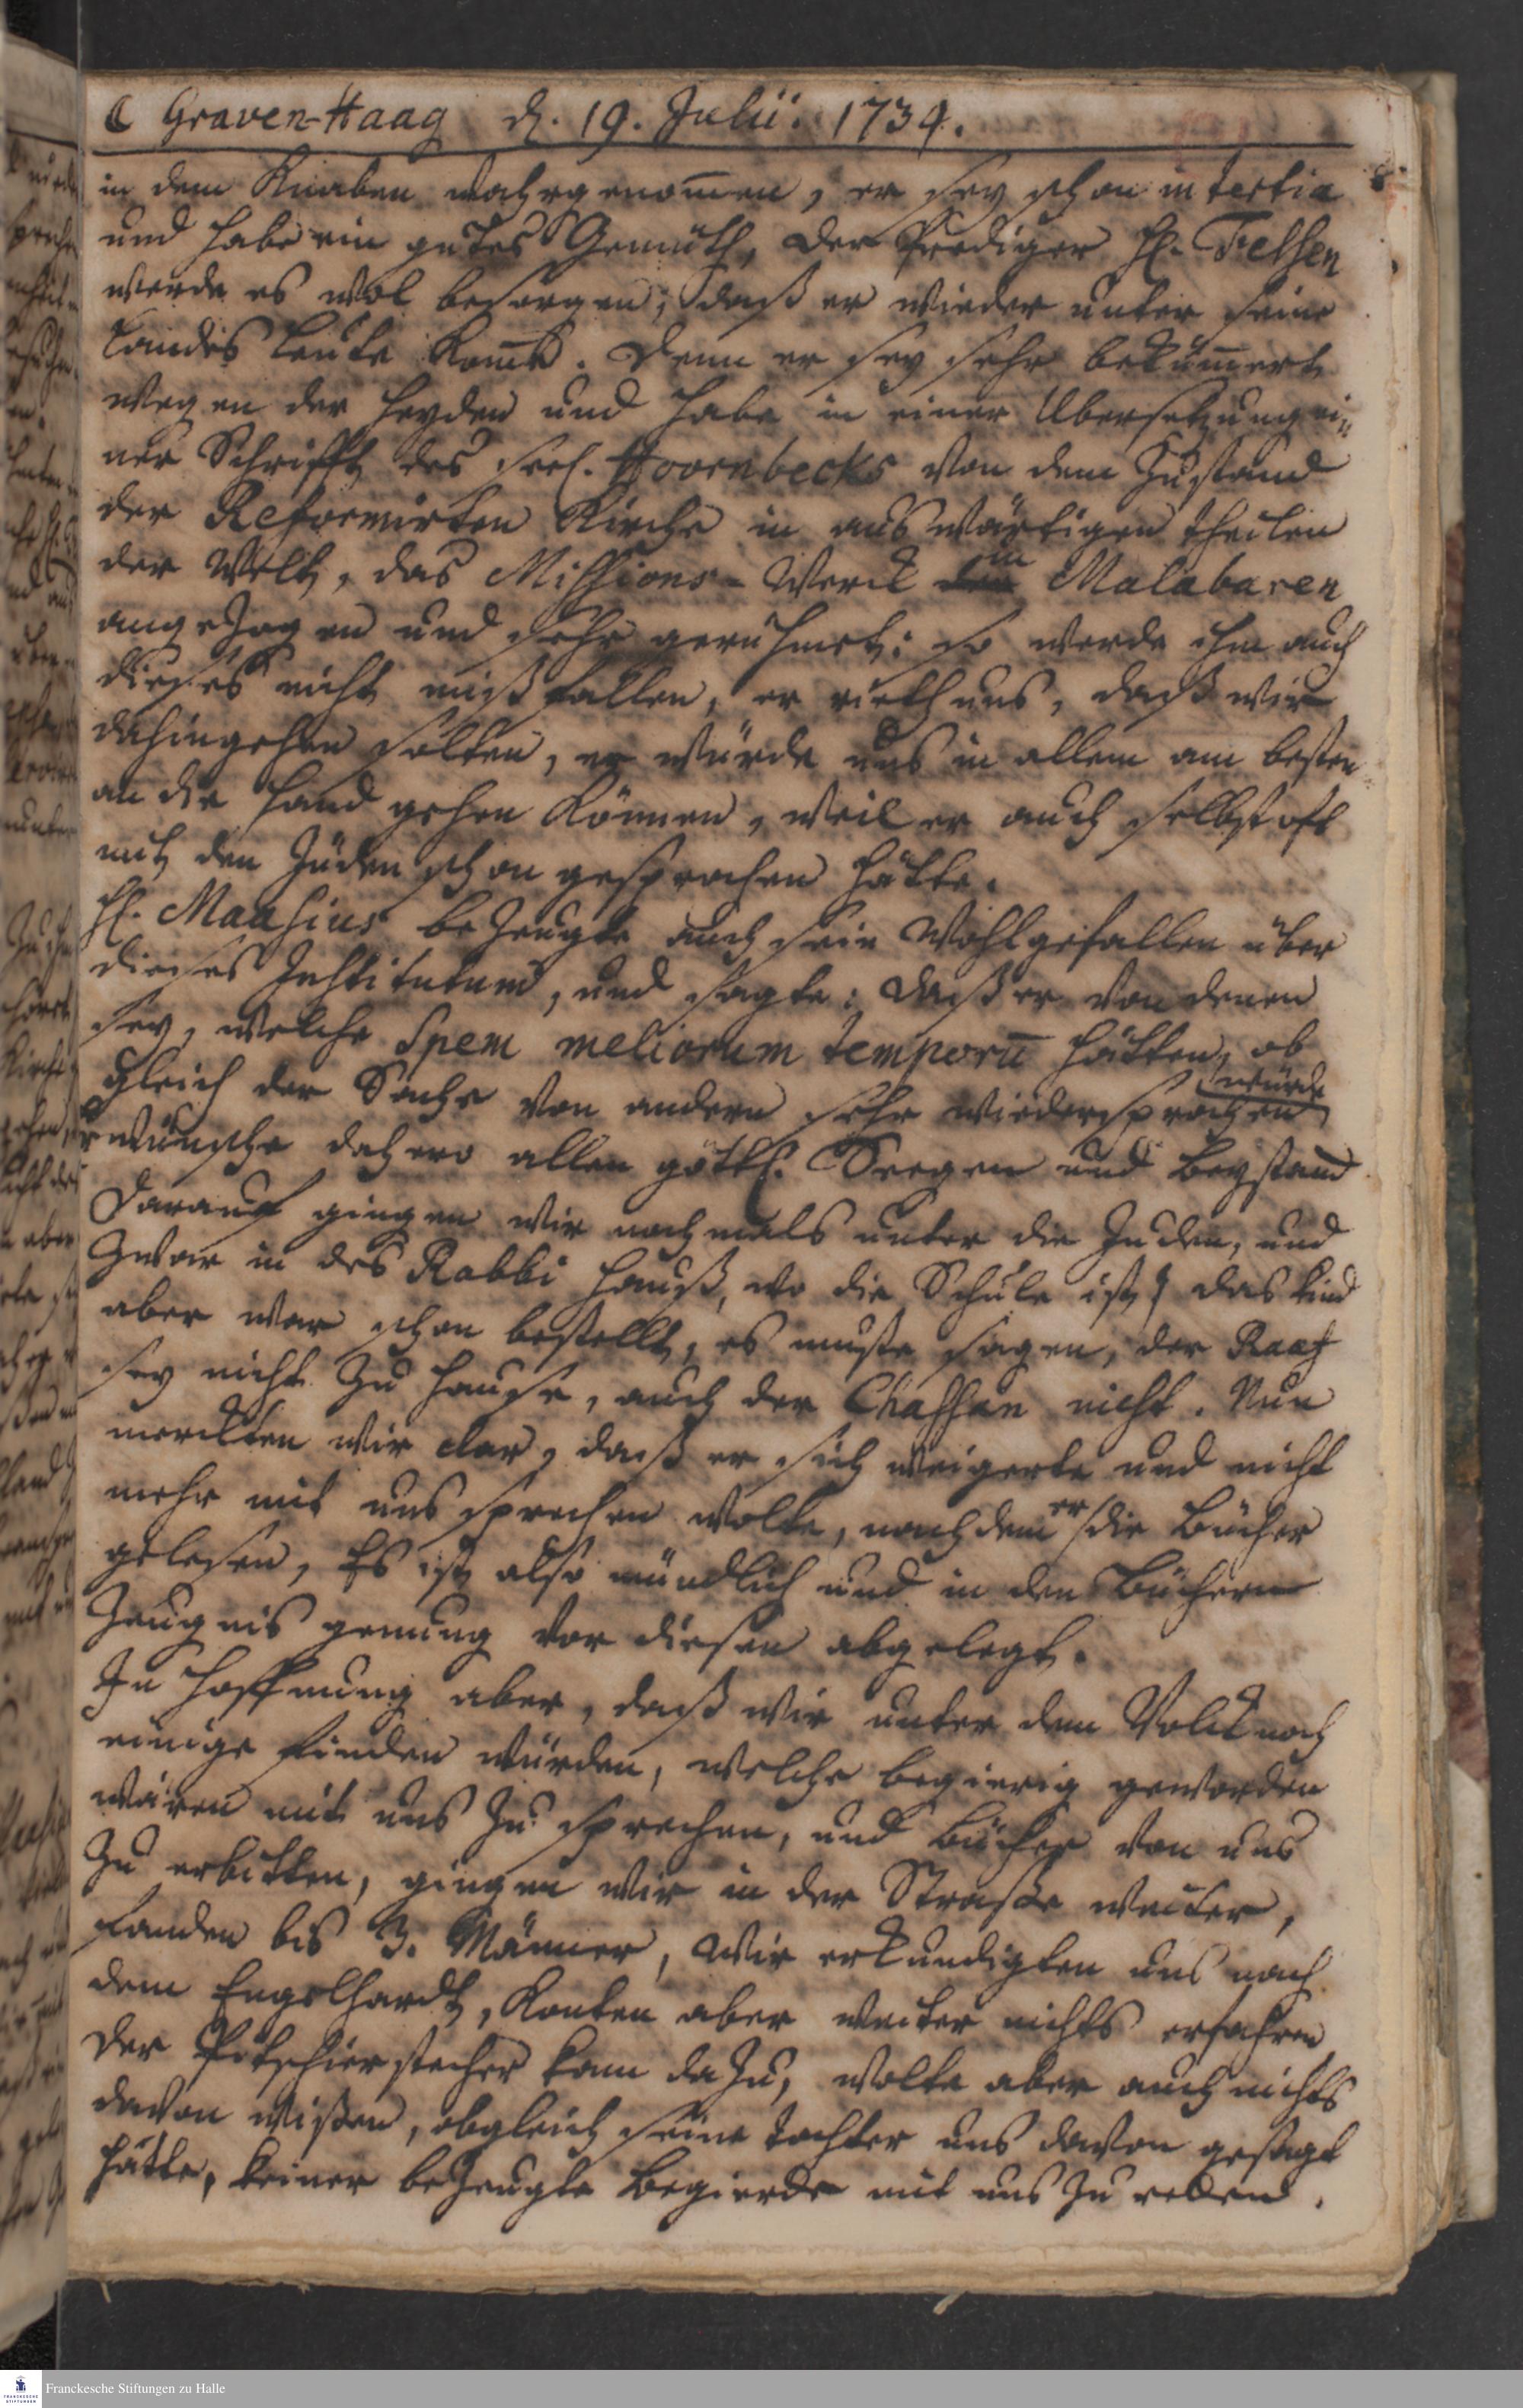 ☾ Graven-Haag d. 19. Julii. 1734.
in dem Knaben wahrgenom̄en, er sey schon in tertia
und habe ein gutes Gemüth, der Prediger H. Felsen
werde es wol besorgen, daß er wieder unter seine
Landes Leute kom̄e. Denn er sey sehr bekūmert
wegen der Heyden und habe in einer Ubersetzung ei„
ner Schrifft des seel. Hoornbecks von dem Zustand
der Reformirten Kirche in auswärtigen theilen
der Welt, das Missions-Werck in Malabaren
angezogen und sehr gerühmet: so werde ihm auch
dieses nicht mißfallen, er rieth uns, daß wir
dahingehen solten, er würde uns in allem am besten
an die Hand gehen können, weil er auch selbst oft
mit den Jüden schon gesprochen hätte.
H. Maasius bezeugte auch sein Wohlgefallen über
dieses Institutum, und sagte: daß er von denen
sey, welche Spem meliorum temporū hätten, ob
gleich der Sache von andern sehr wiedersprochen würde
er wünsche dahero allen göttl. Seegen und Beystand
Darauf gingen wir nochmals unter die Juden, und
zwar in des Rabbi Hauß, wo die Schule ist, das Kind
aber war schon bestellt, es muste sagen, der Raaf
sey nicht zu Hause, auch der Chassan nicht. Nun
merckten wir clar, daß er sich weigerte und nicht
mehr mit uns sprechen wolte, nachdem er die Bücher
gelesen, Es ist also mündlich und in den Büchern
Zeugnis genung vor diesen abgelegt.
In Hoffnung aber, daß wir unter dem Volck noch
einige finden würden, welche begierig geworden
wären mit uns zu sprechen, und Bücher von uns
zu erbitten, gingen wir in der Straße weiter,
fanden bis 3. Männer, wir erkundigten uns nach
dem Engelhardt, konten aber weiter nichts erfahren
der Pitschierstecher kam dazu, wolte aber auch nichts
davon wißen, obgleich seine Tochter uns davon gesagt
hatte, keiner bezeugte Begierde mit uns zu reden.
Franckesche Stiftungen zu Halle